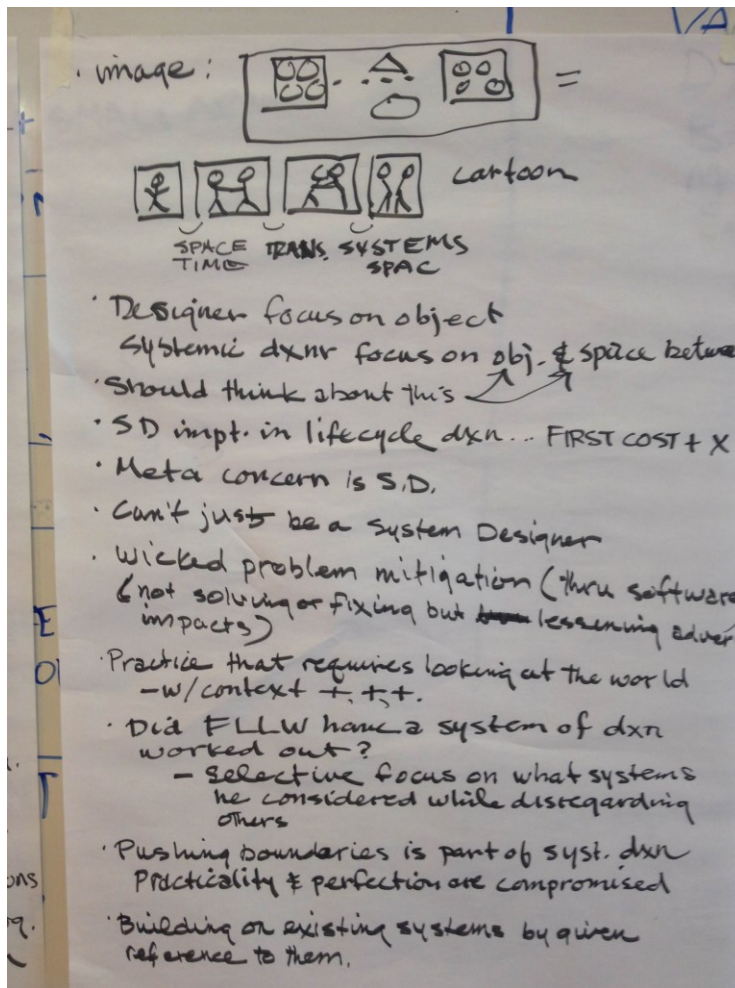 VA
· image : =
cartoon
SPACE TRANS. SYSTEMS
TIME SPAC
· Designer focus on object
systemic dxnr focus on obj. & space betwe
· Should think about this
· SD impt. in lifecycle dxn... FIRST COST + X
· Meta concern is S.D.
· Can't just be a System Designer
· Wicked problem mitigation (thru software
(not solving or fixing but lessening adver
impacts)
· Practice that requires looking at the world
- w/context +, +, +.
· Did FLLW have a system of dxn
worked out?
- selective focus on what systems
he considered while disregarding
others
· Pushing boundaries is part of syst. dxn
Practicality & perfection are compromised
· Building on existing systems by given
reference to them.
E
O
ons
q.